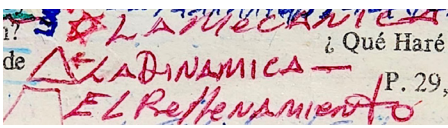 LA MECANICA
¿ Qué Haré
de LA DINAMICA —
P. 29,
EL Rellenamiento